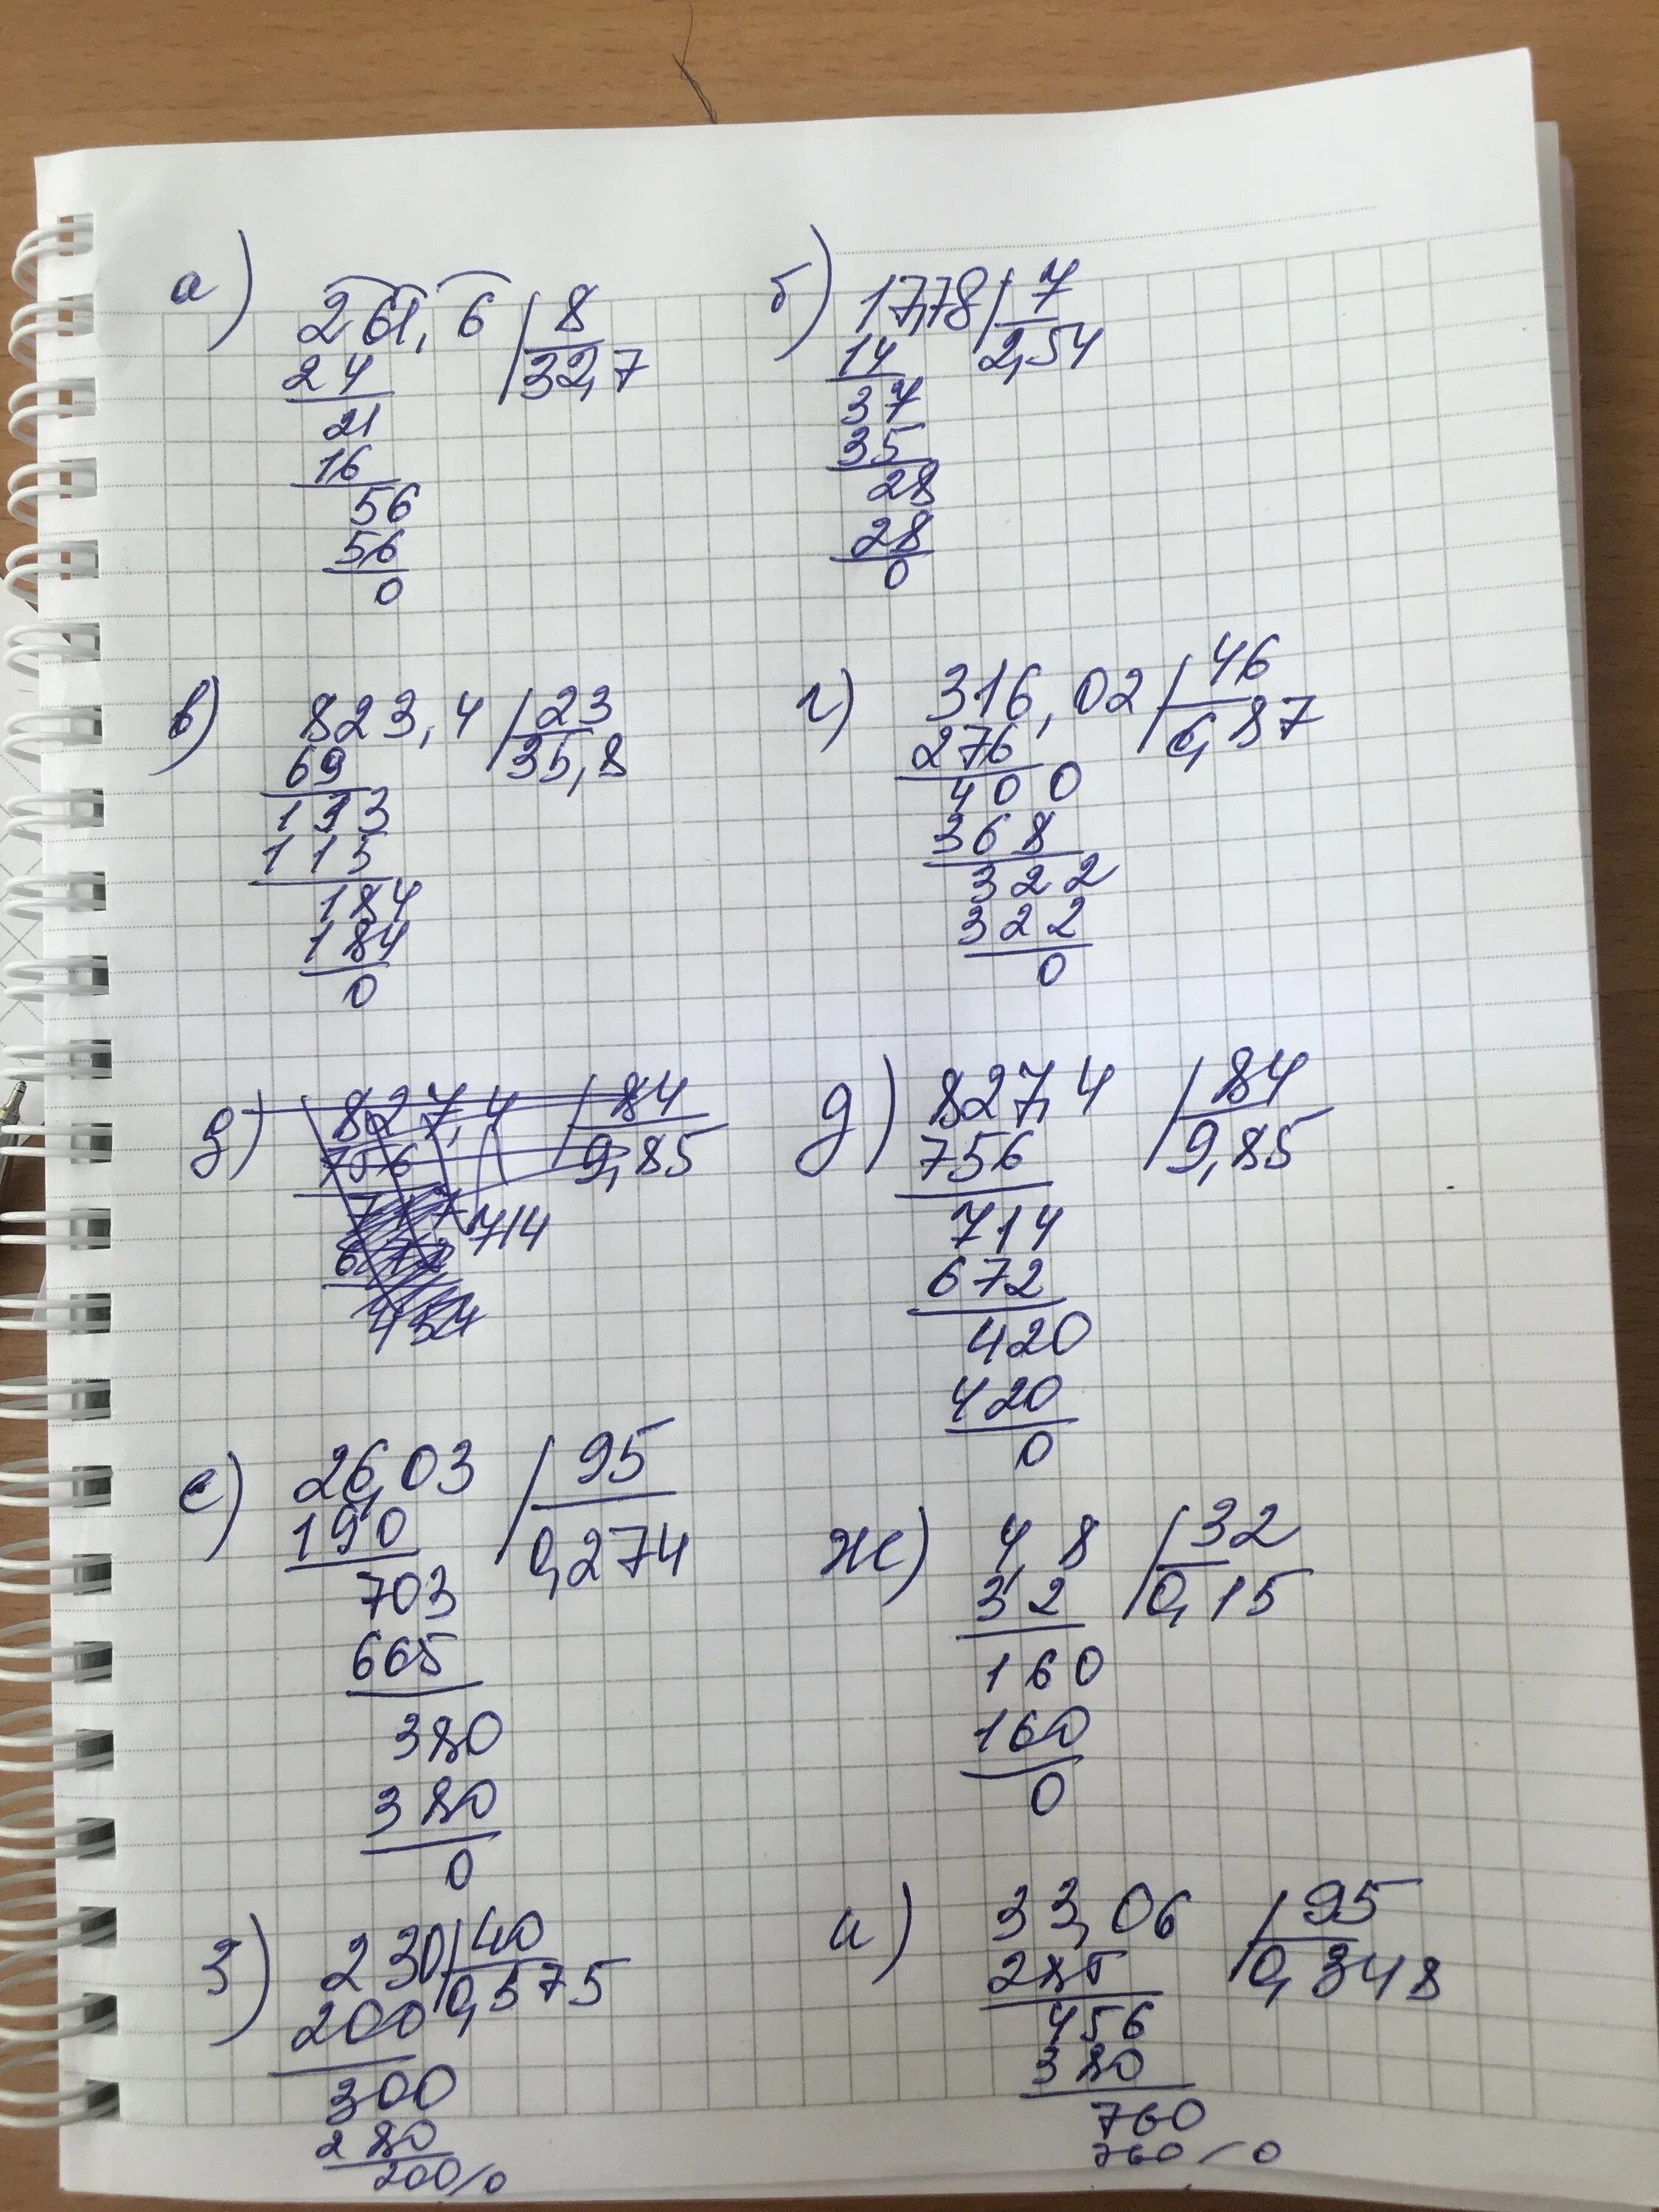 а) 261,6 | 8
24 32,7
21
16
56
56
0
б) 17,78 | 7
14 2,54
37
35
28
28
0
в) 823,4 | 23
69 35,8
133
115
184
184
0
г) 316,02 | 46
276 6,87
400
368
322
322
0
д) 827,4 | 84
756 9,85
714
672
454
д) 827,4 | 84
756 9,85
714
672
420
420
0
е) 26,03 | 95
190 0,274
703
665
380
380
0
ж) 4,8 | 32
32 0,15
160
160
0
з) 230 | 40
200 0,575
300
280
200/0
и) 33,06 | 95
285 0,348
456
380
760
760/0